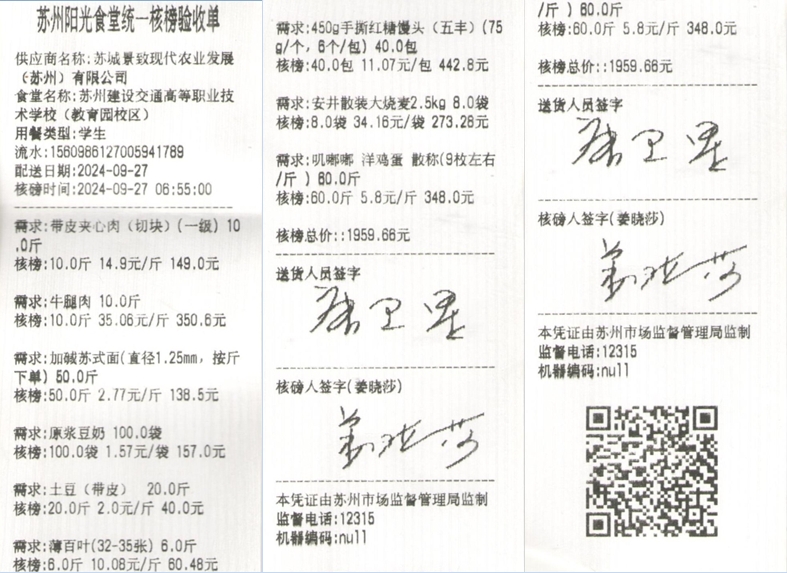 苏州阳光食堂统一核榜验收单
供应商名称:苏城景致现代农业发展
(苏州）有限公司
食堂名称:苏州建设交通高等职业技
术学校（教育园校区）
用餐类型:学生
流水:1560986127005941789
配送日期:2024-09-27
核磅时间:2024-09-27 06:55:00
需求:带皮夹心肉（切块）(一级) 10
.0斤
核榜:10.0斤 14.9元/斤 149.0元
需求:牛腿肉 10.0斤
核榜:10.0斤 35.06元/斤 350.6元
需求:加碱苏式面(直径1.25mm，按斤
下单) 50.0斤
核榜:50.0斤 2.77元/斤 138.5元
需求:原浆豆奶 100.0袋
核榜:100.0袋 1.57元/袋 157.0元
需求:土豆（带皮） 20.0斤
核榜:20.0斤 2.0元/斤 40.0元
需求:薄百叶(32-35张) 6.0斤
核榜:6.0斤 10.08元/斤 60.48元
需求:450g手撕红糖馒头（五丰）(75
g/个，6个/包) 40.0包
核榜:40.0包 11.07元/包 442.8元
需求:安井散装大烧麦2.5kg 8.0袋
核榜:8.0袋 34.16元/袋 273.28元
需求:叽嘟嘟 洋鸡蛋 散称(9枚左右
/斤 ) 60.0斤
核榜:60.0斤 5.8元/斤 348.0元
核榜总价::1959.66元
送货人员签字
核磅人签字(姜晓莎)
姜晓莎
本凭证由苏州市场监督管理局监制
监督电话:12315
机器编码:null
/斤 ) 60.0斤
核榜:60.0斤 5.8元/斤 348.0元
核榜总价::1959.66元
送货人员签字
核磅人签字(姜晓莎)
姜晓莎
本凭证由苏州市场监督管理局监制
监督电话:12315
机器编码:null